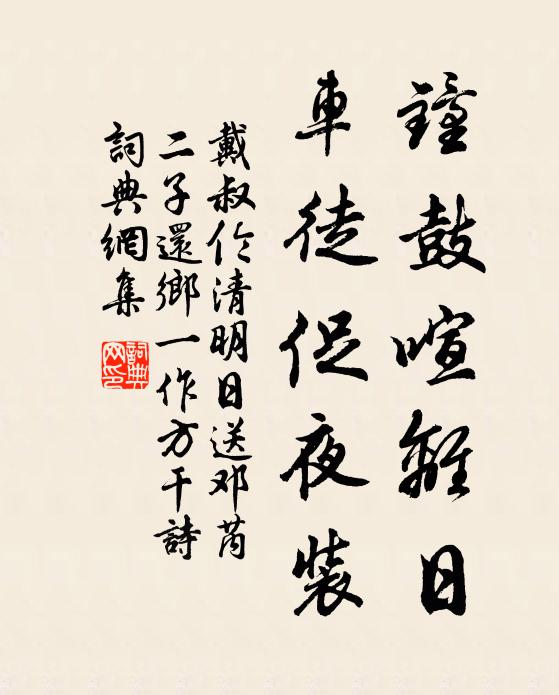 鐘鼓喧離日
車徒促夜裝
戴叔伦清明日送邓芮
二子還鄉一作方干詩
詞典網集
詞典網印